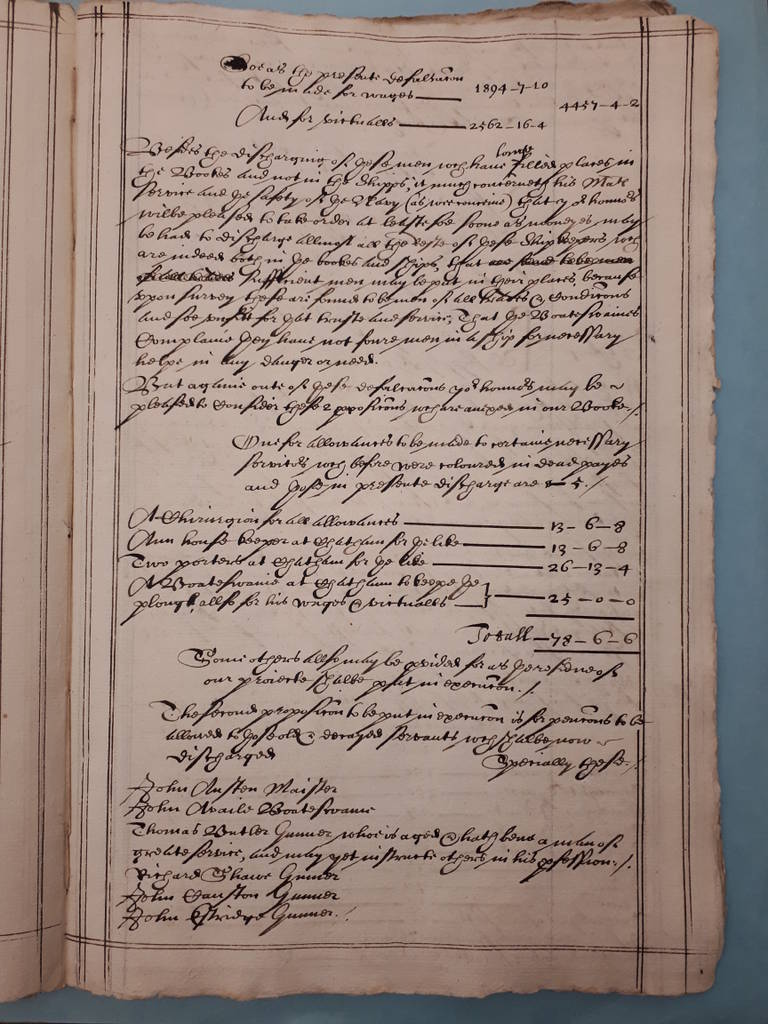 Soe as the presente defalcacon
to be made for wages 1894-7-10
4457-4-2
And for victualls 2562-16-4
Besides the discharging of these men wch have longe filled places in
the Bookes and not in the Shipps, it much concerneth his Mats
service and ye safety of ye Navy (as wee conceive) that yor honnors
wilbe pleased to take order at least soe soone as moneyes may
be had to discharge allmost all the reste of these Shipkeepers wch
are indeed both in ye bookes and ships, that
Sufficient men may be put in their places, because
upon survey these are found to be men of all trades & Conditions
and soe unfitt for yat truste and service, That ye Boateswaines
Complaine they have not foure men in a ship for necessary
helpe in any danger or need.
But againe oute of these defalcacons yor honnors may be
pleased to Consider these 2 propositions wch are anexed in our Booke./.
One for allowances to be made to certaine necessary
servitors wch before were coloured in dead payes
and those in presente discharge are 5./
A Chirurgion for all allowances 13-6-8
Ann house keeper at Chatham for ye like 13-6-8
Two porters at Chatham for ye like 26-13-4
A Boateswaine at Chatham to keepe ye
plough, allso for his wages & victualls 25-0-0
Totall 78-6-6
Some others allso may be provided for as ye residue of
our projecte shalbe put in execution./.
The second proposition to be put in execution is for pencons to be
allowed to those old & decayed servants wch shalbe now
discharged
Specially these./.
John Austen Maister
John Availe Boateswaine
Thomas Butler Gunner, who is aged & hath bene a man of
greate service, and may yet instructe others in his profession./.
Richard Shawe Gunner
John Gunner
John Gunner./.